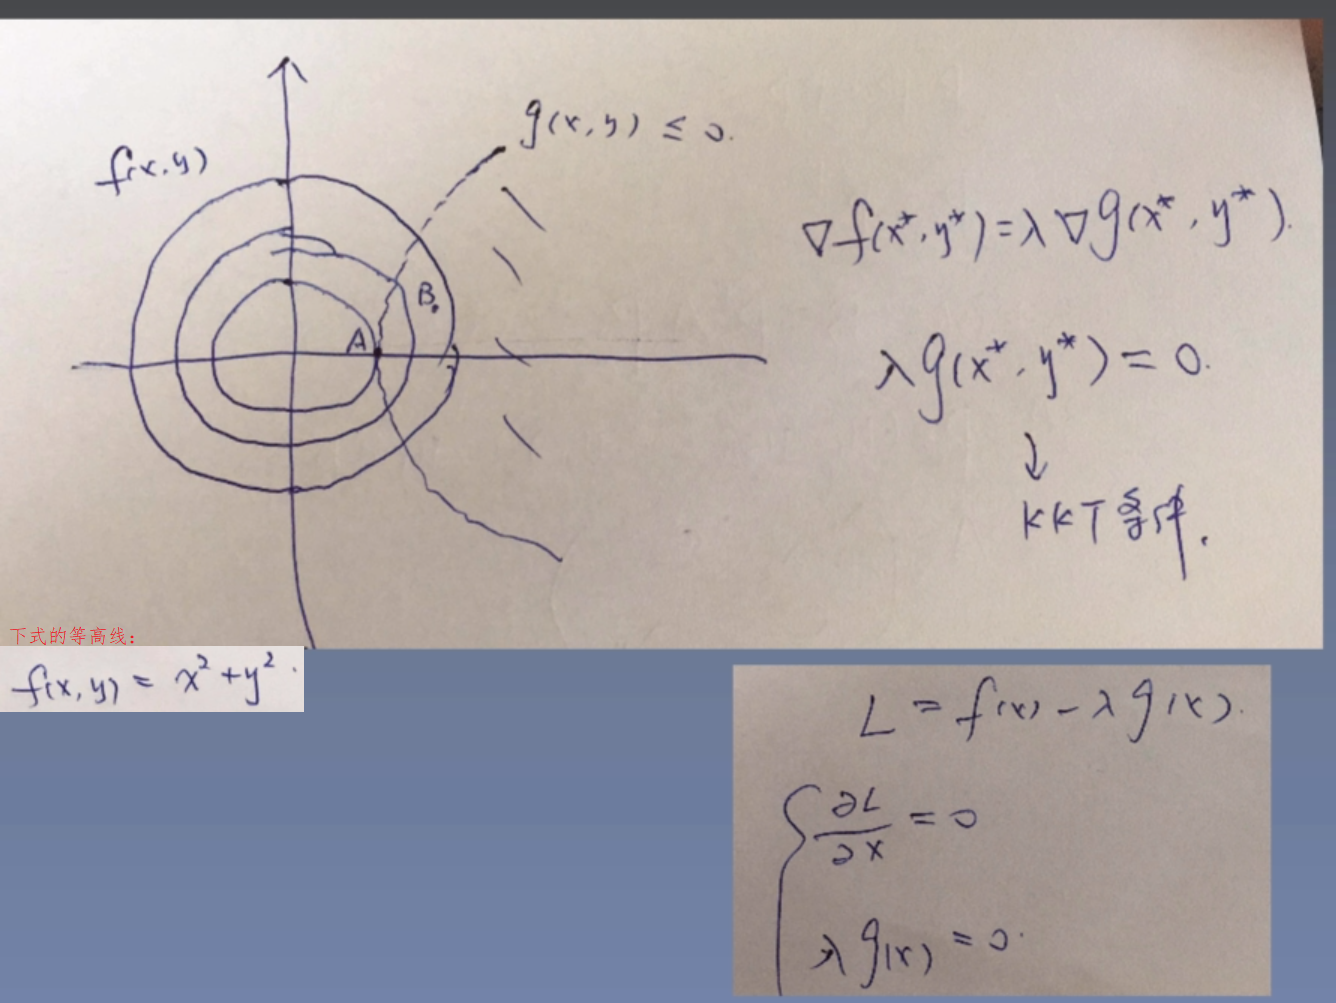 f(x,y)
g(x,y) ≤ 0.
B.
A
∇f(x*,y*)=λ∇g(x*,y*).
λg(x*,y*)=0.
↓
KKT条件.
下式的等高线：
f(x,y) = x²+y².
L = f(x) - λg(x).
∂L/∂x = 0
λg(x) = 0.